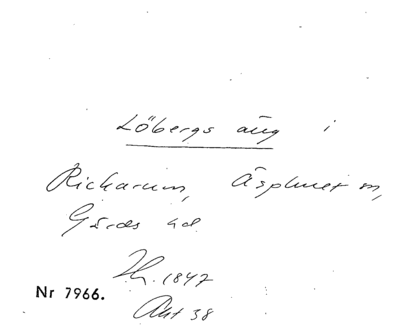 Löbergs äng i
Rickarum, Äsphult m,
Gärds hd
Th. 1847
Nr 7966.
Akt 38